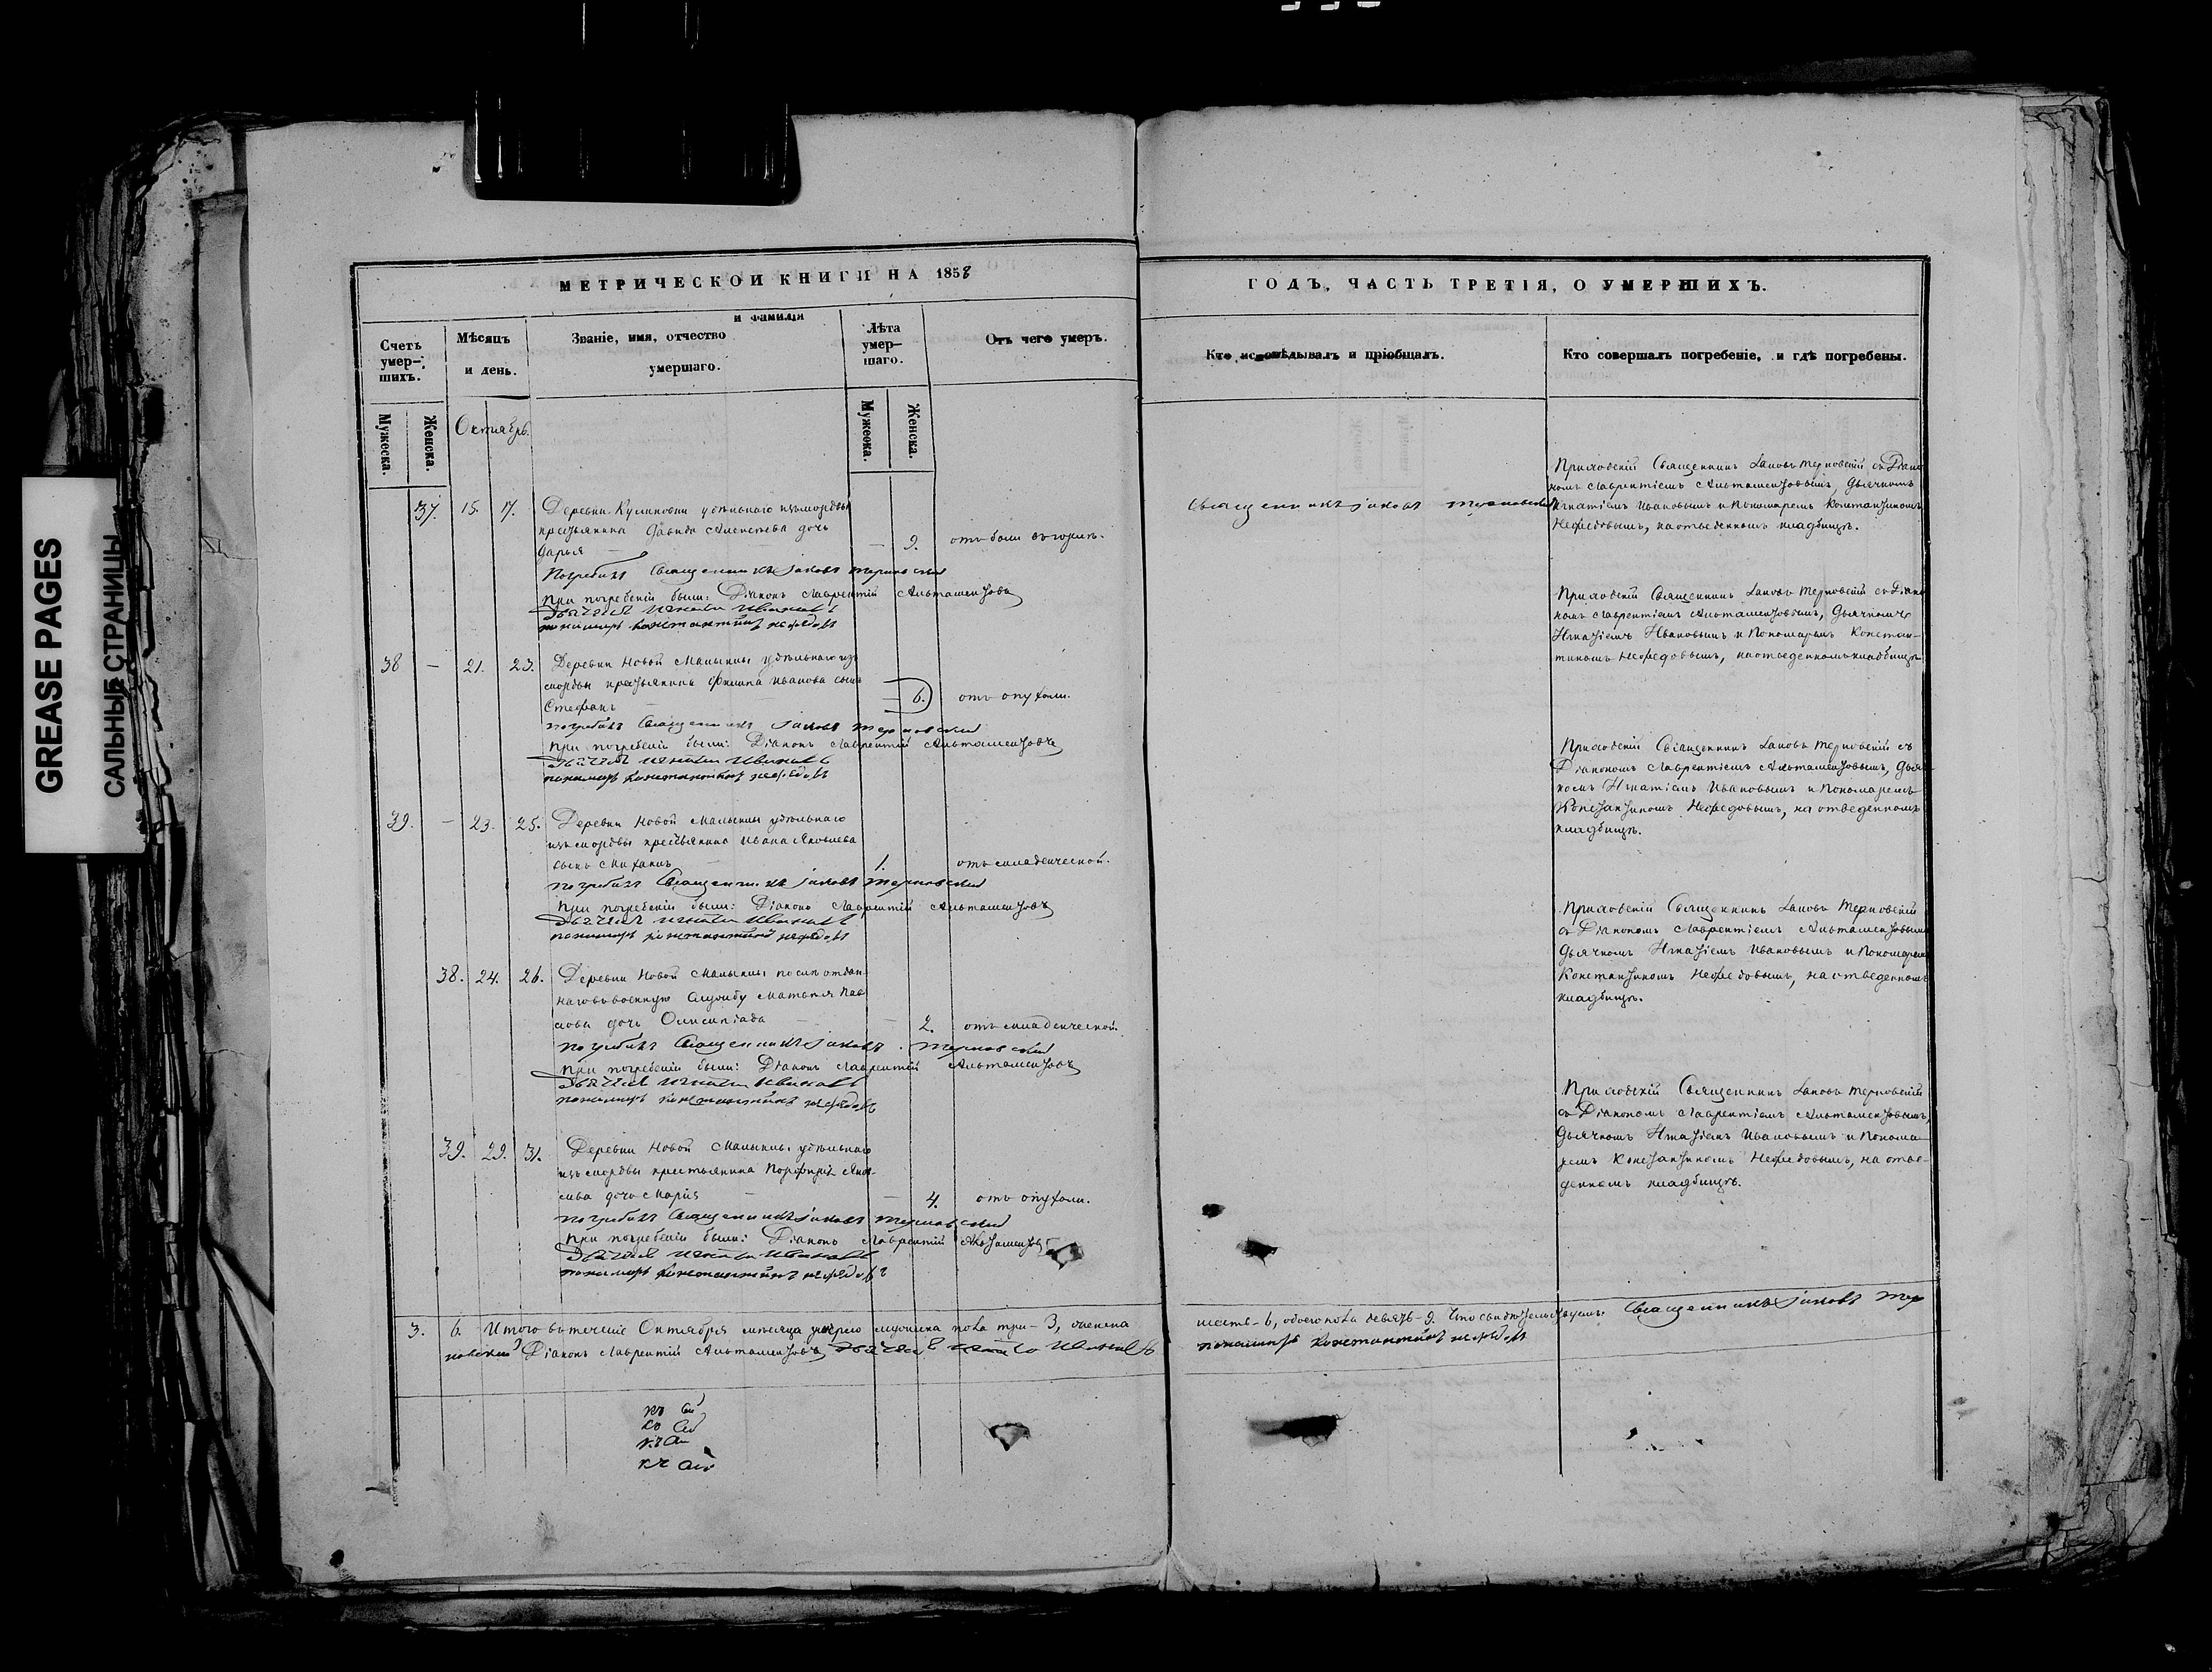 GREASE PAGES
САЛЬНЫЕ СТРАНИЦЫ
МЕТРИЧЕСКОЙ КНИГИ НА 1858
Счетъ умер-шихъ.
Мѣсяцъ и день.
Званіе, имя, отчество и фамилія умершаго.
Лѣта умер-шаго.
Отъ чего умеръ.
Мужеска.
Женска.
Октябрь.
Мужеска.
Женска.
37. 15. 17. Деревни удѣльнаго изъ мордвы
крестьянина Давида Алексѣева дочь
Дарья — — 9. отъ боли въ горлѣ.
Погребалъ Священникъ Іаковъ Терновскій
При погребеніи были: Діаконъ Лаврентій Альтаментовъ
Дьячекъ Игнатій Ивановъ
пономарь Константинъ Нефедовъ
38 — 21. 23. Деревни Новой Малыклы удѣльнаго изъ
мордвы крестьянина Филипа Иванова сынъ
Стефанъ — 6. отъ опухоли.
погребалъ Священникъ Іаковъ Терновскій
При погребеніи были: Діаконъ Лаврентій Альтаментовъ
Дьячекъ Игнатій Ивановъ
пономарь Константинъ Нефедовъ
39. — 23. 25. Деревни Новой Малыклы удѣльнаго
изъ мордвы крестьянина Ивана Яковлева
сынъ Михаилъ 1. отъ младенческой.
погребалъ Священникъ Іаковъ Терновскій
При погребеніи были: Діаконъ Лаврентій Альтаментовъ
Дьячекъ Игнатій Ивановъ
пономарь Константинъ Нефедовъ
38. 24. 26. Деревни Новой Малыклы отдан-
наго въ военную службу Матвея Пав-
лова дочь Олимпіада — — 2. отъ младенческой.
погребалъ Священникъ Іаковъ Терновскій
При погребеніи были: Діаконъ Лаврентій Альтаментовъ
Дьячекъ Игнатій Ивановъ
пономарь Константинъ Нефедовъ
39. 29. 31. Деревни Новой Малыклы удѣльнаго
изъ мордвы крестьянина Порфирія Яков-
лева дочь Марія — — 4. отъ опухоли.
погребалъ Священникъ Іаковъ Терновскій
При погребеніи были: Діаконъ Лаврентій Альтаментовъ
Дьячекъ Игнатій Ивановъ
пономарь Константинъ Нефедовъ
3. 6. Итого въ теченіе Октября мѣсяца умерло мужеска пола три - 3, женска
новскій Діаконъ Лаврентій Альтаментовъ Дьячекъ Игнатій Ивановъ
ГОДЪ, ЧАСТЬ ТРЕТІЯ, О УМЕРШИХЪ.
Кто исповѣдывалъ и пріобщалъ.
Кто совершалъ погребеніе, и гдѣ погребены.
Священникъ Іаковъ Терновскій
Приходскій Священникъ Іаковъ Терновскій съ Діако-
номъ Лаврентіемъ Альтаментовымъ, Дьячкомъ
Игнатіемъ Ивановымъ и Пономаремъ Константиномъ
Нефедовымъ, на отведенномъ кладбищѣ.
Приходскій Священникъ Іаковъ Терновскій съ Діако-
номъ Лаврентіемъ Альтаментовымъ, Дьячкомъ
Игнатіемъ Ивановымъ и Пономаремъ Констан-
тиномъ Нефедовымъ, на отведенномъ кладбищѣ.
Приходскій Священникъ Іаковъ Терновскій съ
Діакономъ Лаврентіемъ Альтаментовымъ, Дьяч-
комъ Игнатіемъ Ивановымъ и Пономаремъ
Константиномъ Нефедовымъ, на отведенномъ
кладбищѣ.
Приходскій Священникъ Іаковъ Терновскій
съ Діакономъ Лаврентіемъ Альтаментовымъ
Дьячкомъ Игнатіемъ Ивановымъ и Пономаремъ
Константиномъ Нефедовымъ, на отведенномъ
кладбищѣ.
Приходскій Священникъ Іаковъ Терновскій
съ Діакономъ Лаврентіемъ Альтаментовымъ,
Дьячкомъ Игнатіемъ Ивановымъ и Понома-
ремъ Константиномъ Нефедовымъ, на отве-
денномъ кладбищѣ.
шесть - 6, обоего пола девять - 9. Что свидѣтельствуемъ: Священникъ Іаковъ Тер
пономарь Константинъ Нефедовъ